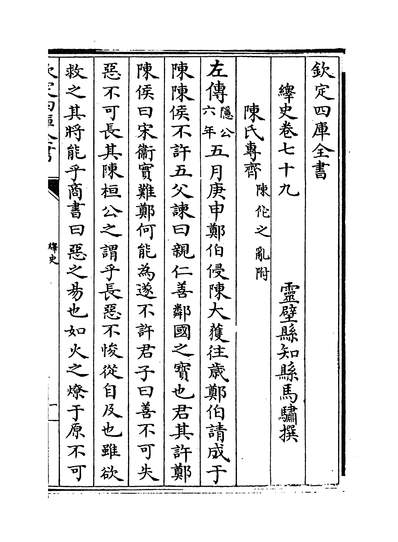 欽定四庫全書
繹史卷七十九
靈壁縣知縣馬驌撰
陳氏專齊 陳佗之亂附
左傳隱公六年五月庚申鄭伯侵陳大獲往歲鄭伯請成于
陳陳侯不許五父諫曰親仁善鄰國之寶也君其許鄭
陳侯曰宋衛實難鄭何能為遂不許君子曰善不可失
惡不可長其陳桓公之謂乎長惡不悛從自及也雖欲
救之其將能乎商書曰惡之易也如火之燎于原不可
欽定四庫全書
繹史